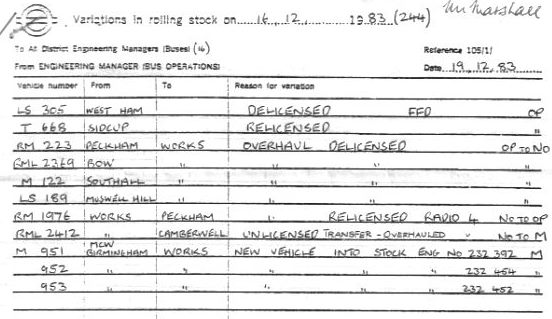 Variations in rolling stock on 16 . 12 . 1983 (244) Mr Marshall
To All District Engineering Managers (Buses) (16) Reference 105/1/
From ENGINEERING MANAGER (BUS OPERATIONS) Date 19.12.83
Vehicle number From To Reason for variation
LS 305 WEST HAM DELICENSED FFD OP
T 668 SIDCUP RELICENSED "
RM 223 PECKHAM WORKS OVERHAUL DELICENSED OP TO NO
RML 2369 BOW " " " "
M 122 SOUTHALL " " " "
LS 189 MUSWELL HILL " " " "
RM 1976 WORKS PECKHAM " RELICENSED RADIO 4 NO TO OP
RML 2412 " CAMBERWELL UNLICENSED TRANSFER - OVERHAULED " NO TO M
M 951 MCW BIRMINGHAM WORKS NEW VEHICLE INTO STOCK ENG NO 232 392 M
952 " " " " " " " 232 454 "
953 " " " " " " " 232 452 "